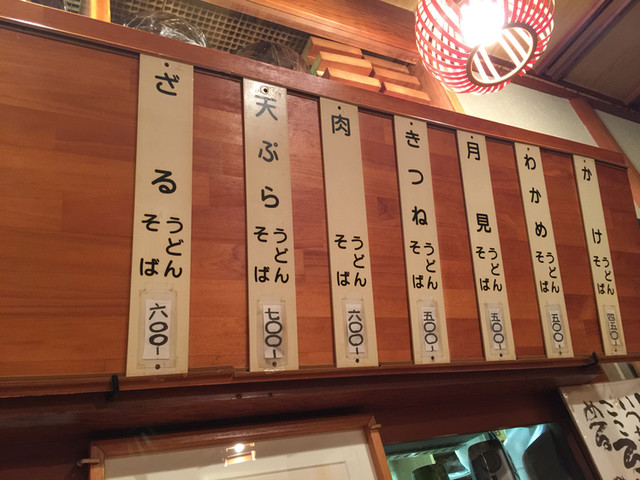 かけ うどん そば 四五〇-
わかめ うどん そば 五〇〇-
月見 うどん そば 五〇〇-
きつね うどん そば 五〇〇-
肉 うどん そば 六〇〇-
天ぷら うどん そば 七〇〇-
ざる うどん そば 六〇〇-